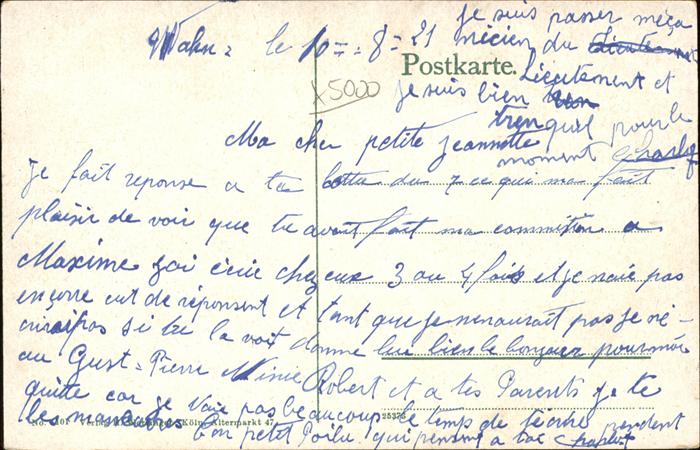 Wahn = le 10 = 8 = 21
je suis passer méça
nicien du
Lieutenant et
je suis bien
trenquil pour le
moment Charly
Postkarte.
x5000
Ma cher petite Jeannette
je fait reponse a ta lettre du 7 ce qui ma fait
plaisir de voir que tu avait fait ma commision a
Maxime jai écrie chez eux 3 ou 4 fois et je naie pas
encorre eut de réponsent et tant que je nenaurait pas je ré-
crirépas si tu la voit donne lui bien le bonjour pour moi
au Gust = Pierre Ninie Robert et a tes Parents je te
quitte car je naie pas beaucoup le temps de técrire pendent
les manages bon petit Poilu qui penssent a toi Charly
Köln, Altermarkt 47
25376